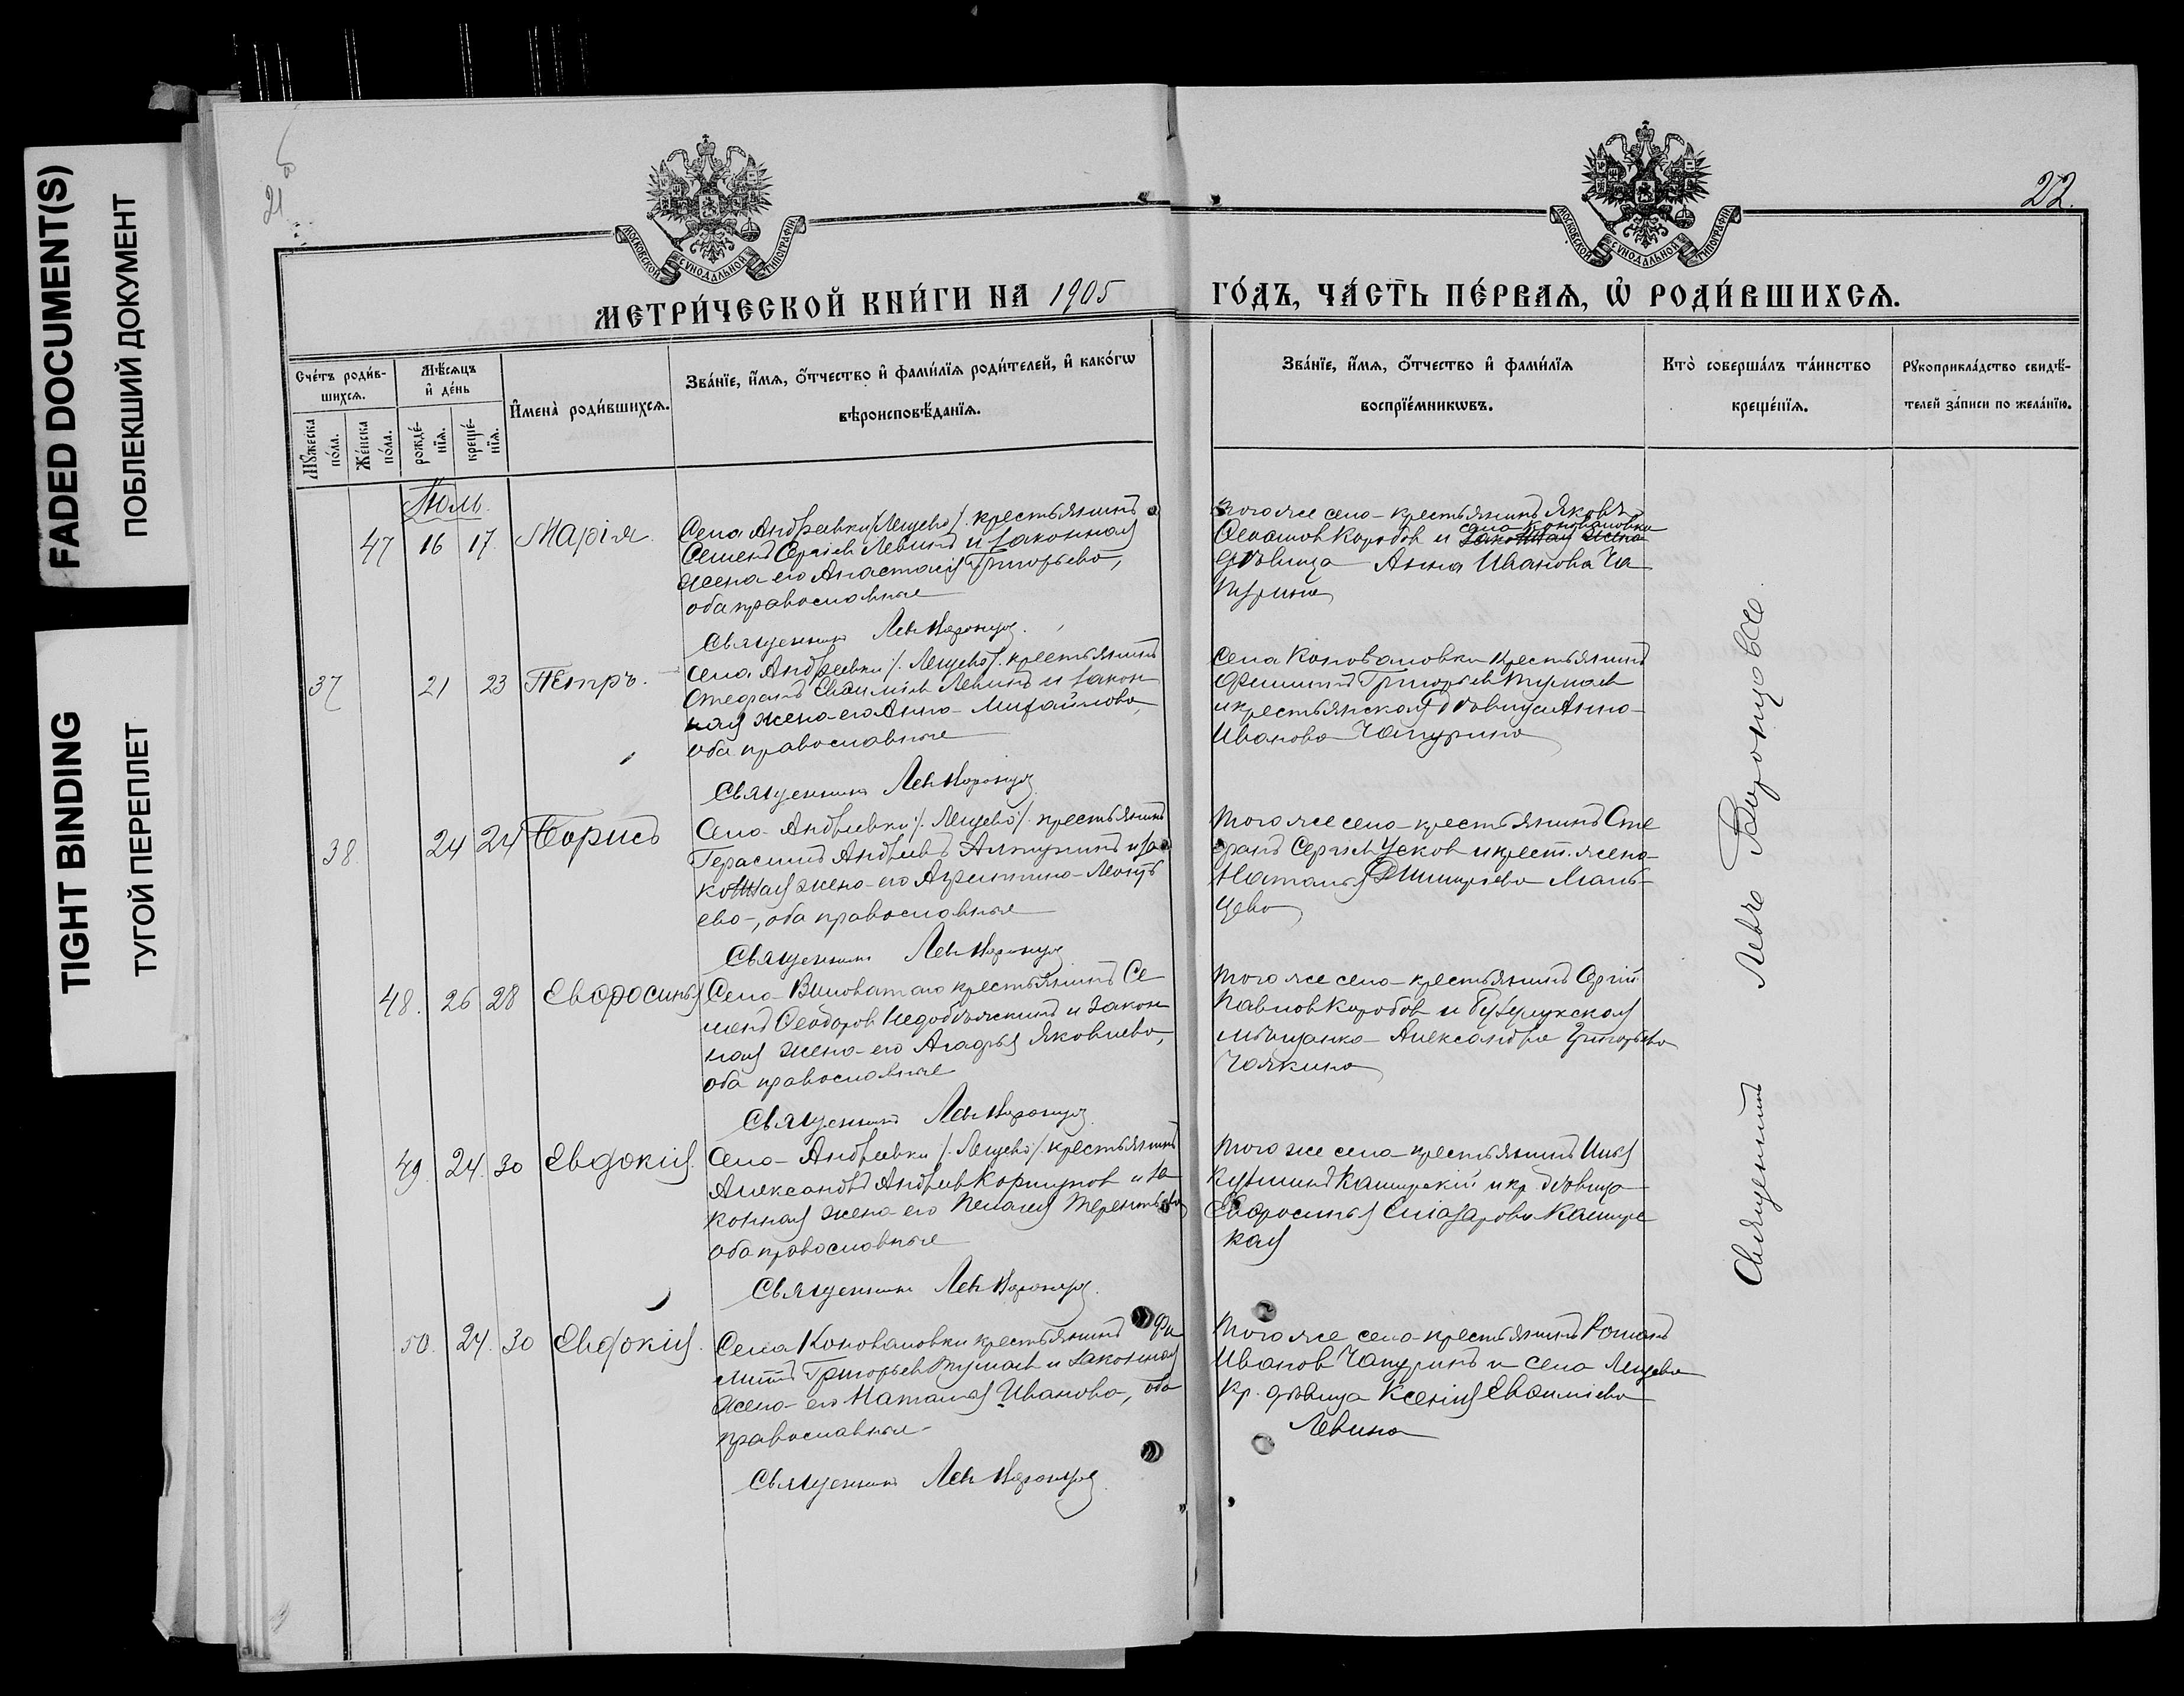 FADED DOCUMENT(S)
ПОБЛЕКШИЙ ДОКУМЕНТ
TIGHT BINDING
ТУГОЙ ПЕРЕПЛЕТ
21
22.
МОСКОВСКОЙ СѴНОДАЛЬНОЙ ТИПОГРАФІИ
МОСКОВСКОЙ СѴНОДАЛЬНОЙ ТИПОГРАФІИ
МЕТРИ́ЧЕСКОЙ КНИ́ГИ НА 1905
ГО́ДЪ, ЧА́СТЬ ПЕ́РВАѦ, Ѡ҆ РОДИ́ВШИХСѦ.
Сче́тъ роди́вшихсѧ.
Мꙋ́жеска по́ла.
Же́нска по́ла.
Мѣ́сѧцъ и҆ де́нь
рожде́нїѧ.
креще́нїѧ.
И҆мена̀ роди́вшихсѧ.
Зва́нїе, и҆́мѧ, ѻ҆́тчество и҆ фами́лїѧ роди́телей, и҆ како́гѡ
вѣроисповѣ́данїѧ.
Зва́нїе, и҆́мѧ, ѻ҆́тчество и҆ фами́лїѧ
воспрїе́мникѡвъ.
Кто̀ соверша́лъ та́инство
креще́нїѧ.
Рꙋкоприкла́дство свидѣ́-
телей за́писи по жела́нїю.
Іюль.
47 16 17. Марія.
Села Андреевки /Лещево/. крестьянинъ
Семенъ Сергіевъ Левинъ и законная
жена его Анастасія Григорьева,
оба православные
Священникъ Левъ Воронцов.
того же села крестьянинъ Яковъ
Коробов и законная жена
села Коноваловки
дѣвица Анна Иванова Ча
пурина
37 21 23 Петръ.
Села Андреевки /. Лещево/. крестьянинъ
Стефанъ Евѳиміев Левинъ и закон
ная жена его Анна Михайлова,
оба православные
Священникъ Левъ Воронцов
Села Коноваловки крестьянинъ
Филиппъ Григорьев Тумаев
и крестьянская дѣвица Анна
Иванова Чапурина
38. 24 24 Борисъ
Села Андреевки /. Лещево/. крестьянинъ
Герасимъ Андреевъ и за
конная жена его Агриппина
ева, оба православные
Священникъ Левъ Воронцов
того же села крестьянинъ Сте
фанъ Сергіев Усков и крест. жена
Наталья Димитріева Маль
цева
48. 26 28 Евфросинья
Села Виловатаго крестьянинъ Се
менъ Ѳеодоров и закон
ная жена его Агафья Яковлева,
оба православные
Священникъ Левъ Воронцов
того же села крестьянинъ Сергій
Павлов Коробов и Бузулукская
мѣщанка Александра Григорьева
Чаякина
49. 24. 30 Евдокія.
Села Андреевки /. Лещево/. крестьянинъ
Александръ Андреев Коршунов и за
конная жена его Пелагея Терентьева
оба православные
Священникъ Левъ Воронцов.
того же села крестьянинъ Илья
Кузьминъ Каширскій и кр. дѣвица
Евфросинья Елиазарова Каширс
кая
50. 24. 30 Евдокія.
Села Коноваловки крестьянинъ Фи
липпъ Григорьев Тумаев и законная
жена его Наталья Иванова, оба
православные
Священникъ Левъ Воронцов.
того же села крестьянинъ Романъ
Иванов Чапуринъ и села Лещева
кр. дѣвица Ксенія Евѳиміева
Левина
Священникъ Левъ Воронцовъ.